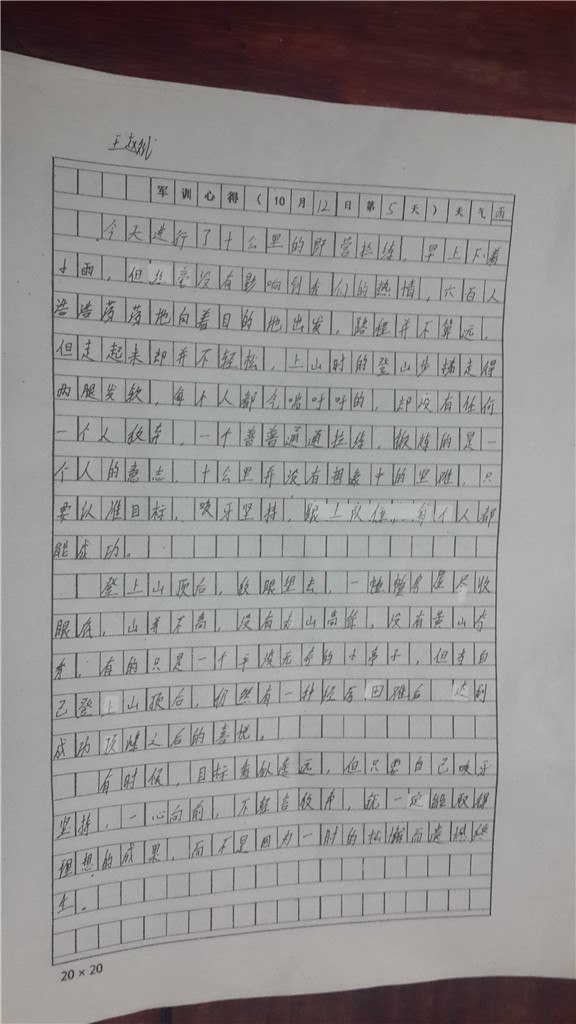 王赵
军训心得(10月12日第5天)天气雨
今天进行了十公里的野营拉练,早上下着
小雨,但丝毫没有影响到我们的热情,六百人
浩浩荡荡地向着目的地出发,路程并不算远,
但走起来却并不轻松,上山时的登山步梯走得
两腿发软,每个人都气喘吁吁的,却没有任何
一个人放弃,一个普普通通拉练,锻炼的是一
个人的意志,十公里并没有想象中的坚难,只
要认准目标,咬牙坚持,跟上队伍,每个人都
能成功。
登上山顶后,放眼望去,一幢幢房屋尽收
眼底,山并不高,没有泰山高耸,没有黄山奇
秀,有的只是一个平淡无奇的小亭子,但当自
己登上山顶后,仍然有一种经历困难后达到
成功顶峰之后的喜悦。
有时候,目标看似遥远,但只要自己咬牙
坚持,一心向前,不轻言放弃,就一定能取得
理想的成果,而不是因为一时的松懈而遗憾终
生。
20×20